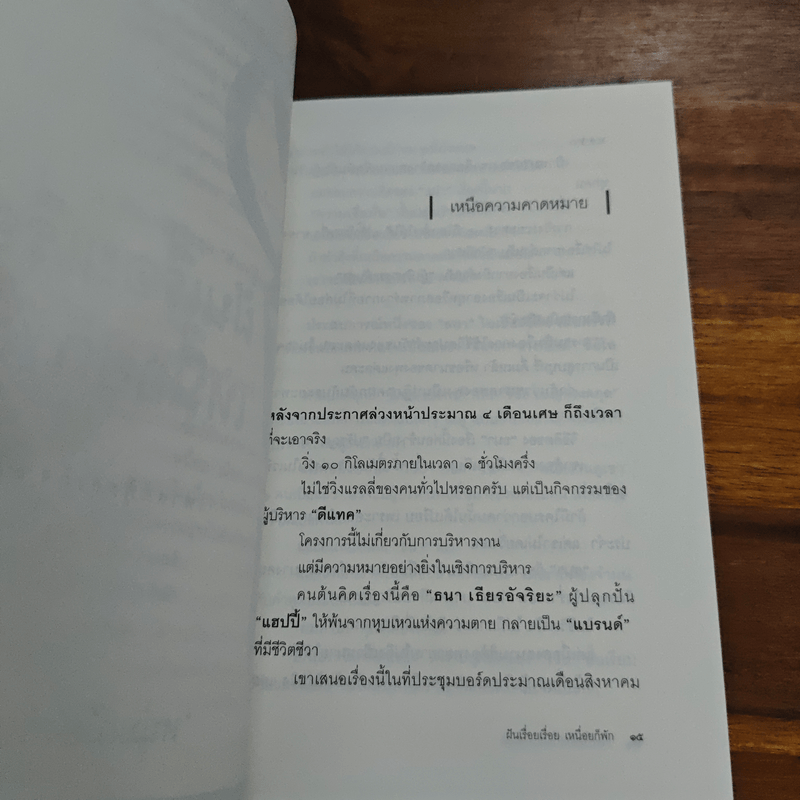 เหนือความคาดหมาย
หลังจากประกาศล่วงหน้าประมาณ ๔ เดือนเศษ ก็ถึงเวลา
ที่จะเอาจริง
วิ่ง ๑๐ กิโลเมตรภายในเวลา ๑ ชั่วโมงครึ่ง
ไม่ใช่วิ่งแรลลี่ของคนทั่วไปหรอกครับ แต่เป็นกิจกรรมของ
ผู้บริหาร “ดีแทค”
โครงการนี้ไม่เกี่ยวกับการบริหารงาน
แต่มีความหมายอย่างยิ่งในเชิงการบริหาร
คนต้นคิดเรื่องนี้คือ “ธนา เธียรอัจริยะ” ผู้ปลุกปั้น
“แฮปปี้” ให้พ้นจากหุบเหวแห่งความตาย กลายเป็น “แบรนด์”
ที่มีชีวิตชีวา
เขาเสนอเรื่องนี้ในที่ประชุมบอร์ดประมาณเดือนสิงหาคม
ฝันเรื่อยเรื่อย เหนื่อยก็พัก ๑๕